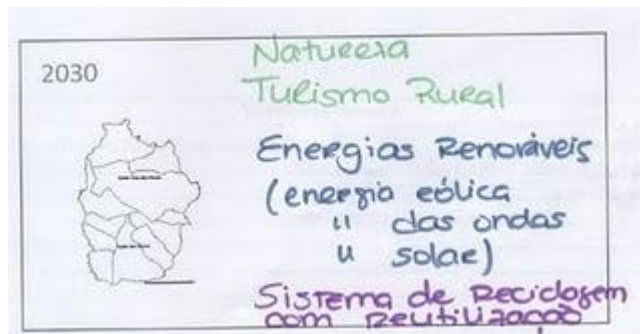 2030
Natureza
Turismo Rural
Energias Renováveis
(energia eólica
" das ondas
" solar)
Sistema de Reciclagem
com Reutilização